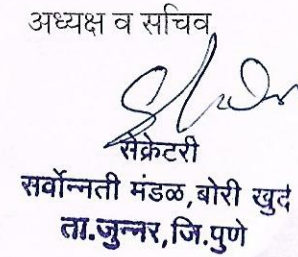 अध्यक्ष व सचिव
सेक्रेटरी
सर्वोन्नती मंडळ,बोरी खुर्द
ता.जुन्नर,जि.पुणे